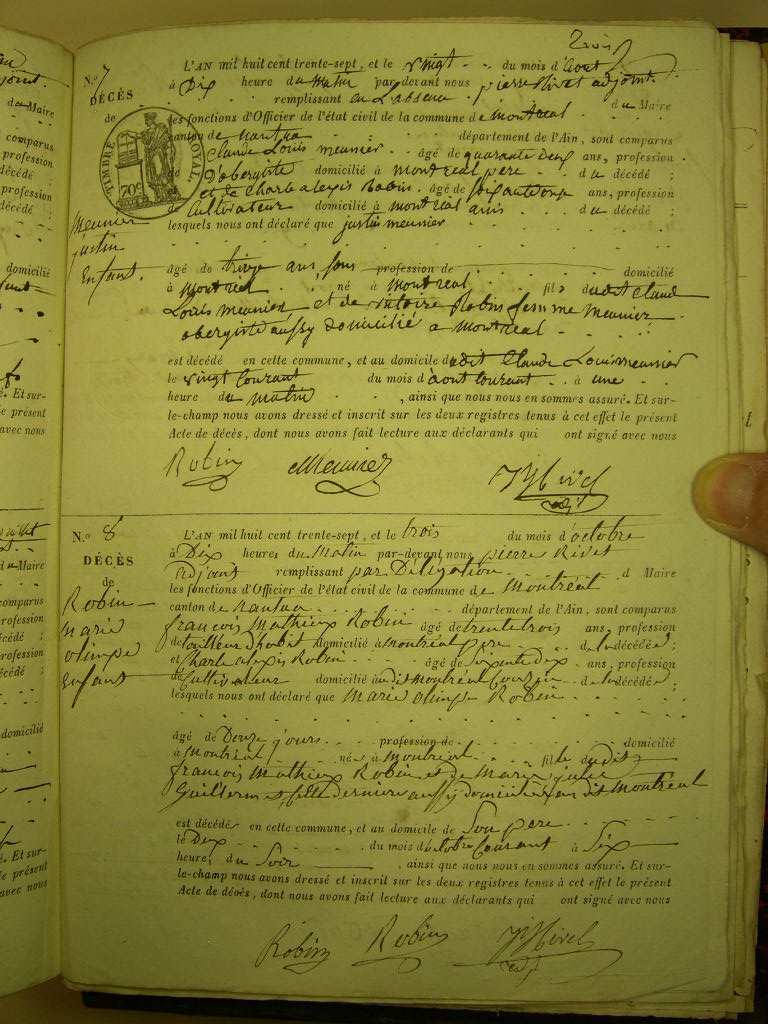 Trois
N.o 7
DÉCÈS
de
Meunier
justin
Enfant.
L'AN mil huit cent trente-sept, et le vingt du mois d'aout
à Dix heure du matin par-devant nous pierre Rivet adjoint
remplissant en L'absence
les fonctions d'Officier de l'état civil de la commune de montreal du Maire
canton de nantua département de l'Ain, sont comparus
Claude Louis meunier âgé de quarante deux ans, profession
d'obergiste domicilié à montreal pere du décédé ;
et le Charle alexis Robin âgé de ans, profession
de Cultivateur domicilié à montréal amis du décédé ;
lesquels nous ont déclaré que justin meunier
âgé de ans, sans profession de domicilié
à montreal né à montreal fils dudit Claude
Louis meunier et de Robin femme meunier
obergiste aussy domicilié a montreal
est décédé en cette commune, et au domicile dudit Claude Louis meunier
le vingt Courant du mois d'aout Courant à une
heure du matin , ainsi que nous nous en sommes assuré. Et sur-
le-champ nous avons dressé et inscrit sur les deux registres tenus à cet effet le présent
Acte de décès, dont nous avons fait lecture aux déclarants qui ont signé avec nous
Robin Meunier
N.o 8
DÉCÈS
de
Robin
Marie
olimpe
Enfant
L'AN mil huit cent trente-sept, et le trois du mois d'octobre
à Dix heures du Matin par-devant nous pierre Rivet
adjoint remplissant par Délégation d Maire
les fonctions d'Officier de l'état civil de la commune de Montréal
canton de Nantua département de l'Ain, sont comparus
françois Mathieux Robin âgé de trente trois ans, profession
de tailleur d'habit domicilié à montréal pere de la décédée ;
et Charle alexis Robin âgé de Soixante Dix ans, profession
de Cultivateur domicilié audit Montréal Cousin de la décédée ;
lesquels nous ont déclaré que Marie olimpe Robin
âgé de Douze jours profession de domicilié
à Montréal née à Montréal fille dudit
françois Mathieux Robin et de Marie
aussy domiciliée au dit Montreal
est décédée en cette commune, et au domicile de Son pere
le Deux du mois d'octobre Courant à Six
heure du Soir , ainsi que nous nous en sommes assuré. Et sur-
le-champ nous avons dressé et inscrit sur les deux registres tenus à cet effet le présent
Acte de décès, dont nous avons fait lecture aux déclarants qui ont signé avec nous
Robin Robin
TIMBRE ROYAL
70c